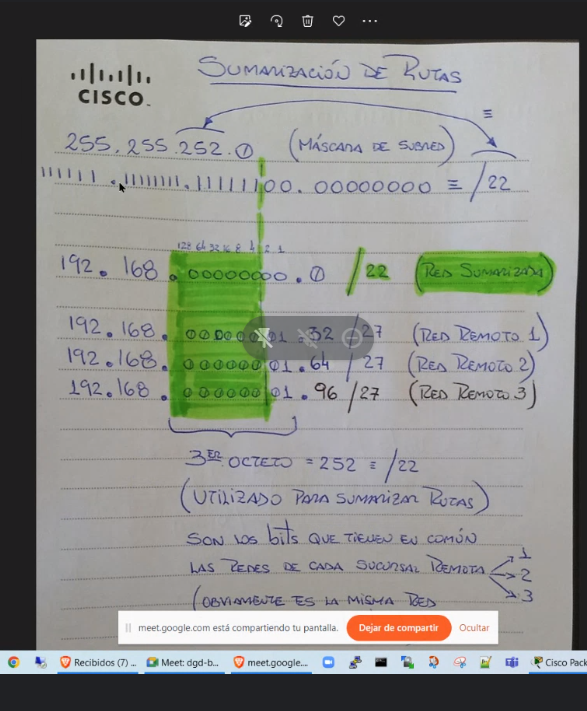 SUMARIZACIÓN DE RUTAS
CISCO
255.255.252.0 (MÁSCARA DE SUBRED)
≡
111111 .11111111.11111100.00000000 ≡ /22
128 64 32 16 8 4 2 1
192.168.00000000.0 /22 (RED SUMARIZADA)
192.168.00000001.32 /27 (RED REMOTO 1)
192.168.00000001.64 /27 (RED REMOTO 2)
192.168.00000001.96 /27 (RED REMOTO 3)
3ER OCTETO = 252 ≡ /22
(UTILIZADO PARA SUMARIZAR RUTAS)
SON LOS bits QUE TIENEN EN COMÚN
LAS REDES DE CADA SUCURSAL REMOTA 1 2 3
(OBVIAMENTE ES LA MISMA RED
meet.google.com está compartiendo tu pantalla. Dejar de compartir Ocultar
Recibidos (7) ... Meet: dgd-b... meet.google... Cisco Pack